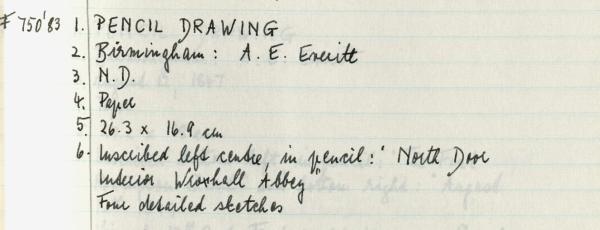 # 750'83 1. PENCIL DRAWING
2. Birmingham: A. E. Everitt
3. N.D.
4. Paper
5. 26.3 x 16.9 cm
6. Inscribed left centre, in pencil: "North Door
Interior Wroxhall Abbey"
Four detailed sketches